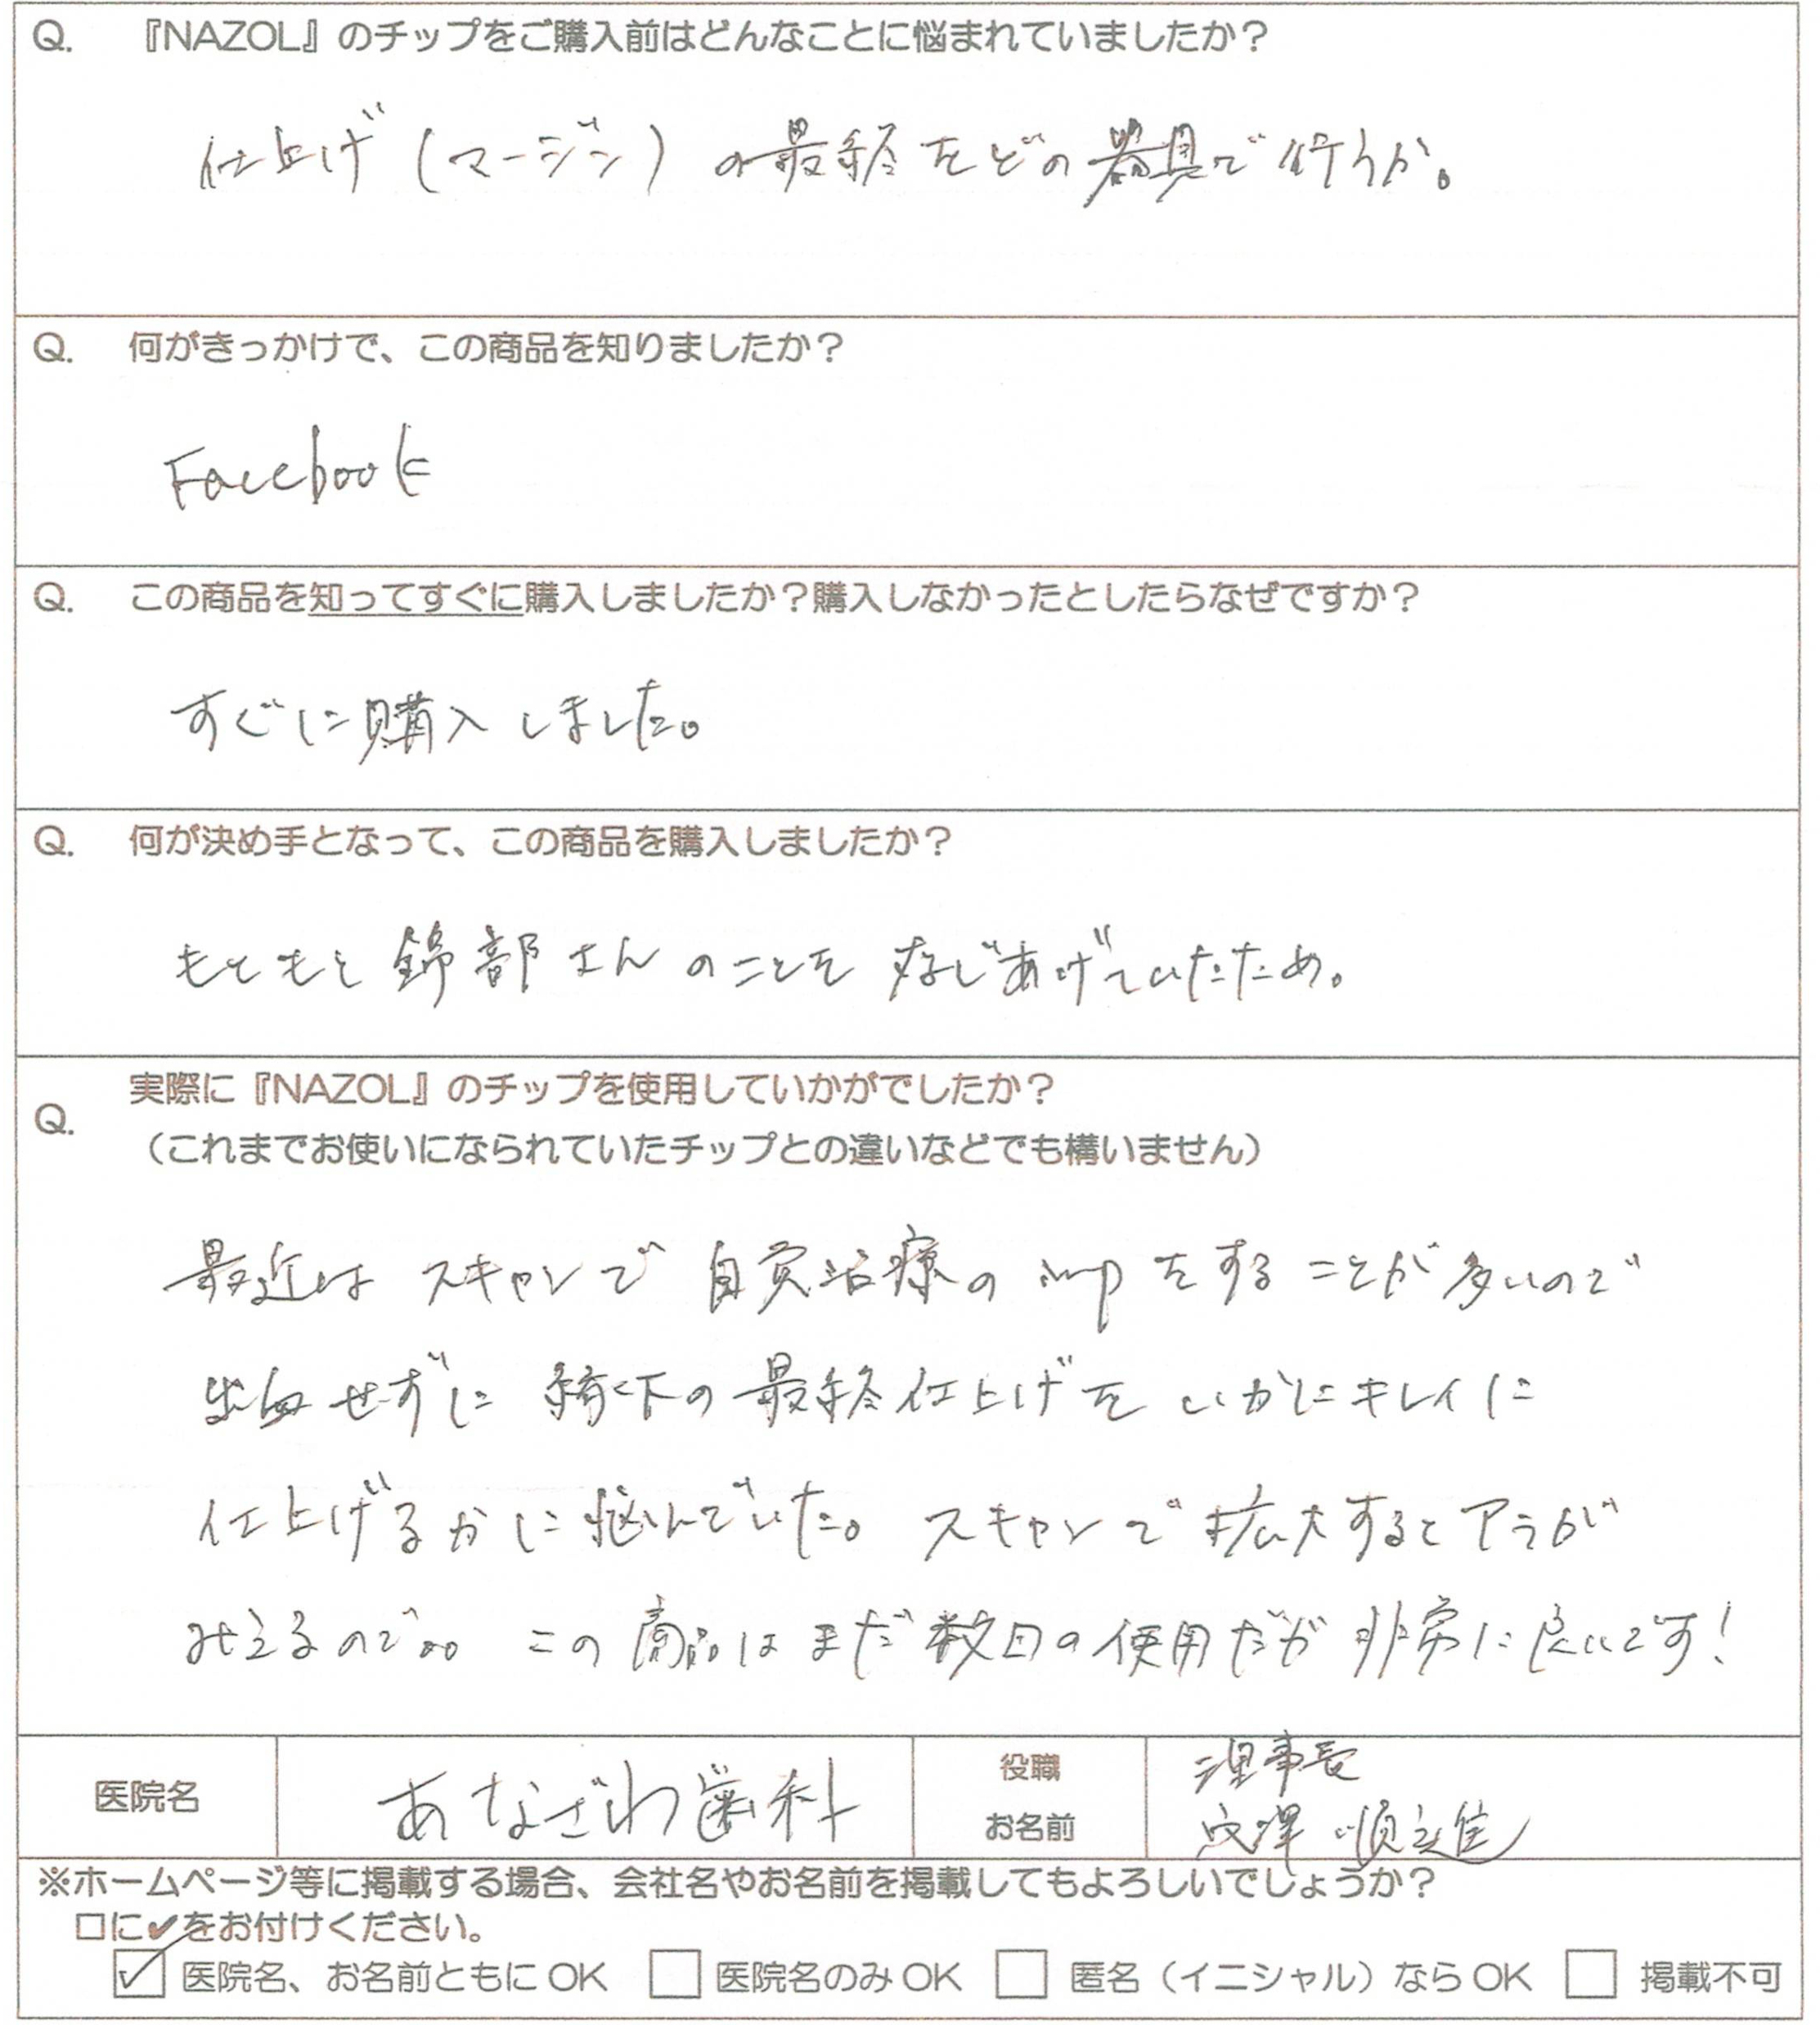 Q. 『NAZOL』のチップをご購入前はどんなことに悩まれていましたか？
仕上げ(マージン)の最終をどの器具で行うか。
Q. 何がきっかけで、この商品を知りましたか？
Facebook
Q. この商品を知ってすぐに購入しましたか？購入しなかったとしたらなぜですか？
すぐに購入しました。
Q. 何が決め手となって、この商品を購入しましたか？
もともと錦部さんのことを存じあげていたため。
Q. 実際に『NAZOL』のチップを使用していかがでしたか？
（これまでお使いになられていたチップとの違いなどでも構いません）
最近はスキャンで自費治療のimpをすることが多いので
出血せずに縁下の最終仕上げをいかにキレイに
仕上げるかに悩んでいた。スキャンで拡大するとアラが
みえるので。。この商品はまだ数回の使用だが非常に良いです!
医院名 あなざわ歯科
役職 理事長
お名前 穴澤 順之進
※ホームページ等に掲載する場合、会社名やお名前を掲載してもよろしいでしょうか？
□に✔をお付けください。
☑ 医院名、お名前ともにOK □ 医院名のみOK □ 匿名（イニシャル）ならOK □ 掲載不可